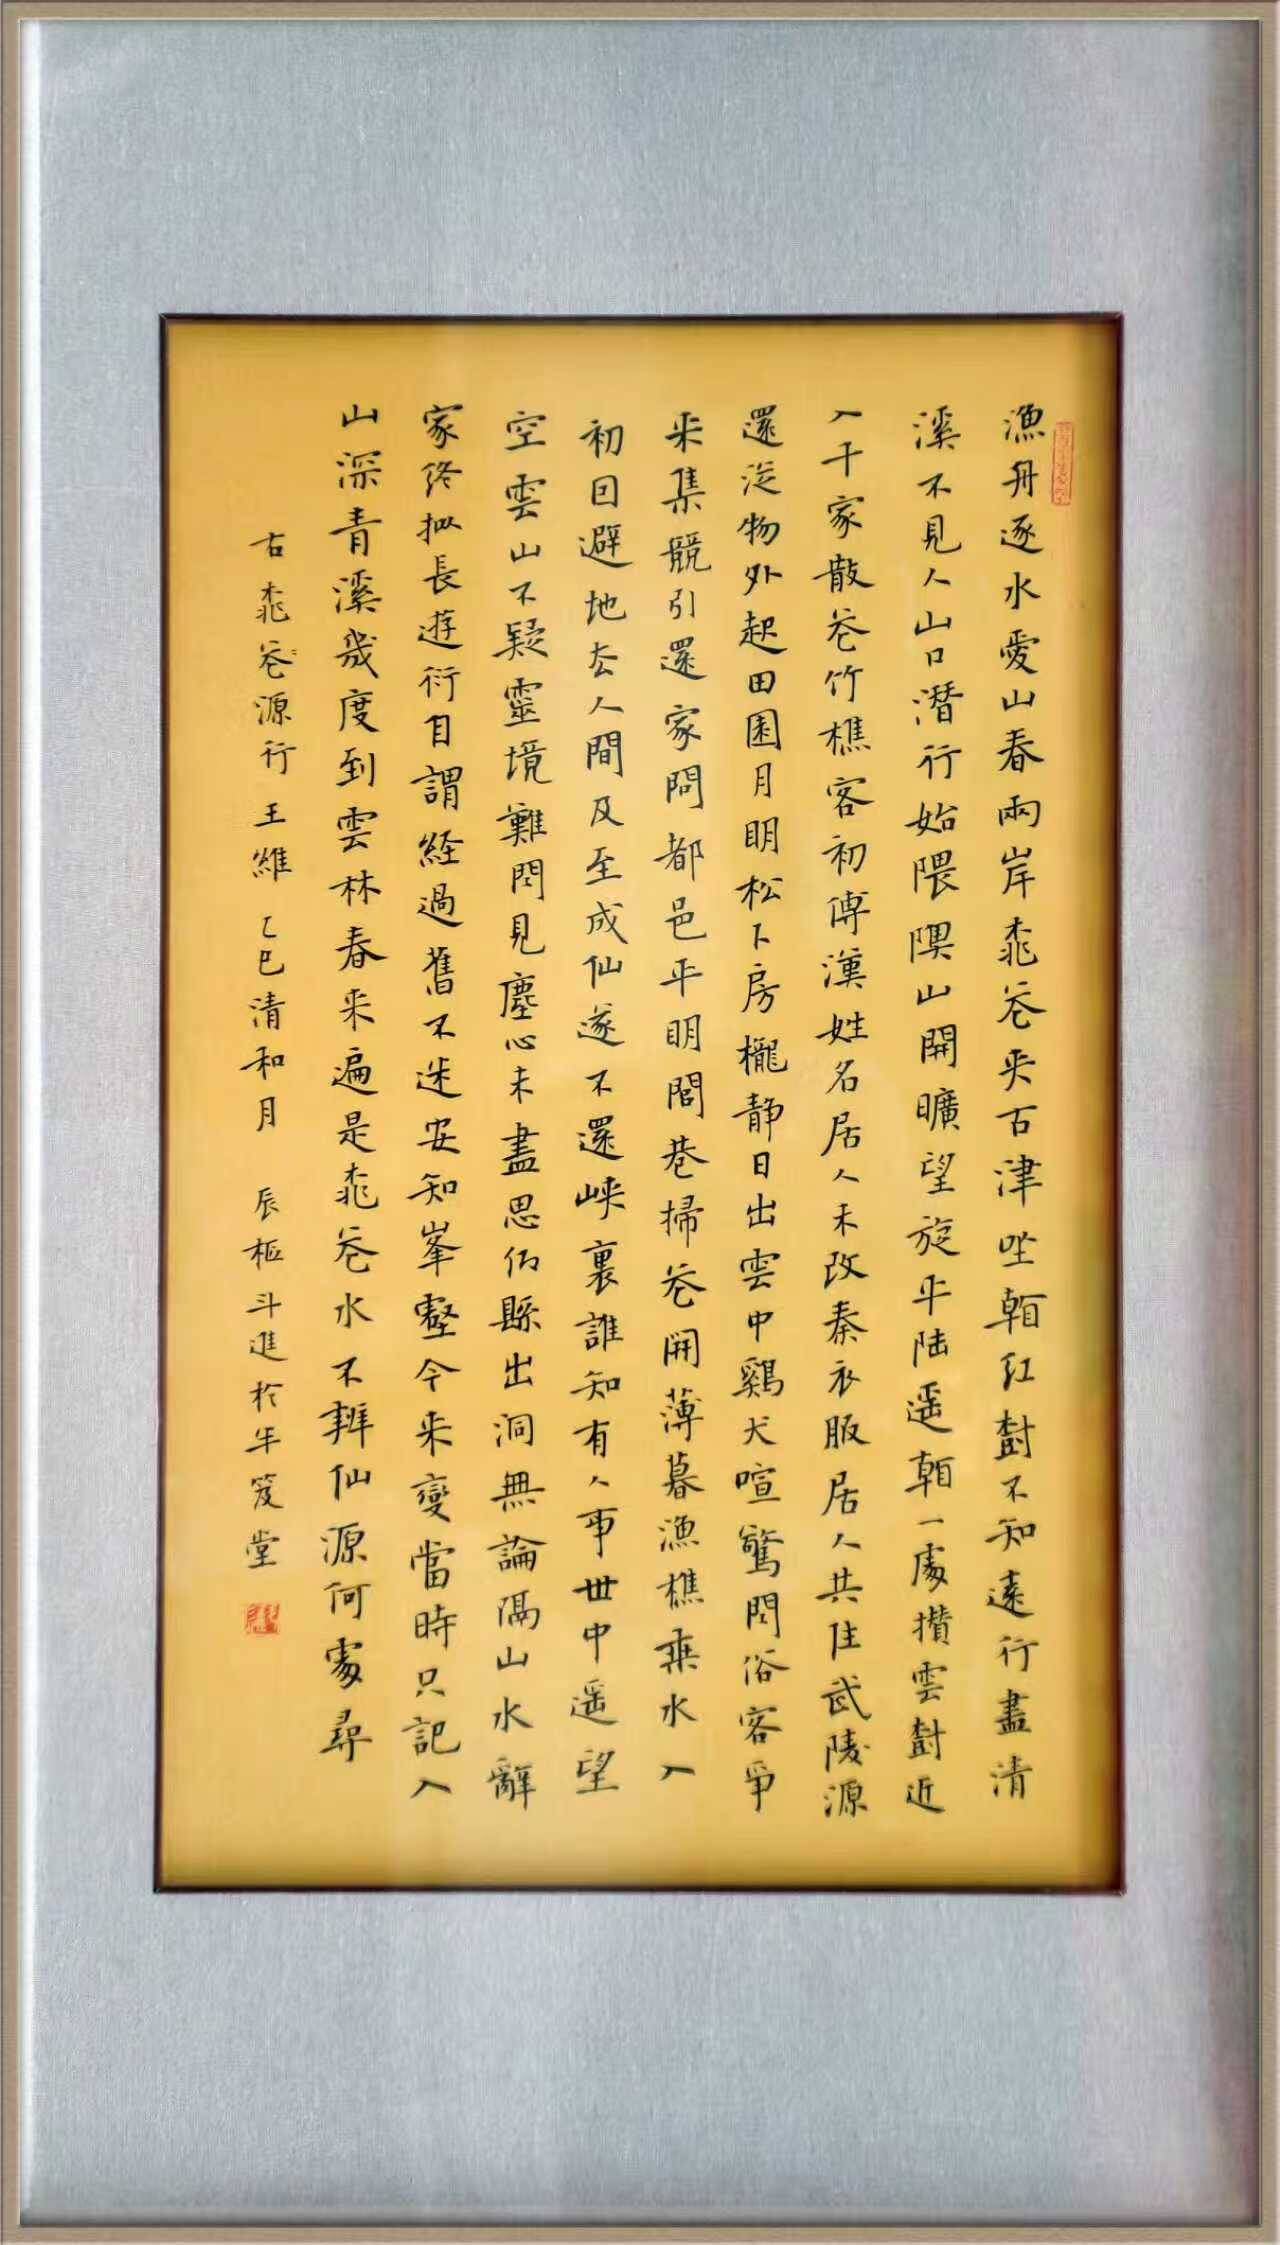 漁舟逐水愛山春兩岸桃花夾古津坐看紅樹不知遠行盡清
溪不見人山口潛行始隈隩山開曠望旋平陸遥看一處攢雲樹近
入千家散花竹樵客初傳漢姓名居人未改秦衣服居人共住武陵源
還從物外起田園月明松下房櫳静日出雲中鷄犬喧驚問俗客爭
来集競引還家問都邑平明閭巷掃花開薄暮漁樵乘水入
初因避地去人間及至成仙遂不還峽裏誰知有人事世中遥望
空雲山不疑靈境難聞見塵心未盡思仍縣出洞無論隔山水辭
家終拟長遊衍自謂經過舊不迷安知峯壑今来變當時只記入
山深青溪幾度到雲林春来遍是桃花水不辨仙源何處尋
右桃花源行王維乙巳清和月 辰樞斗進於年笈堂